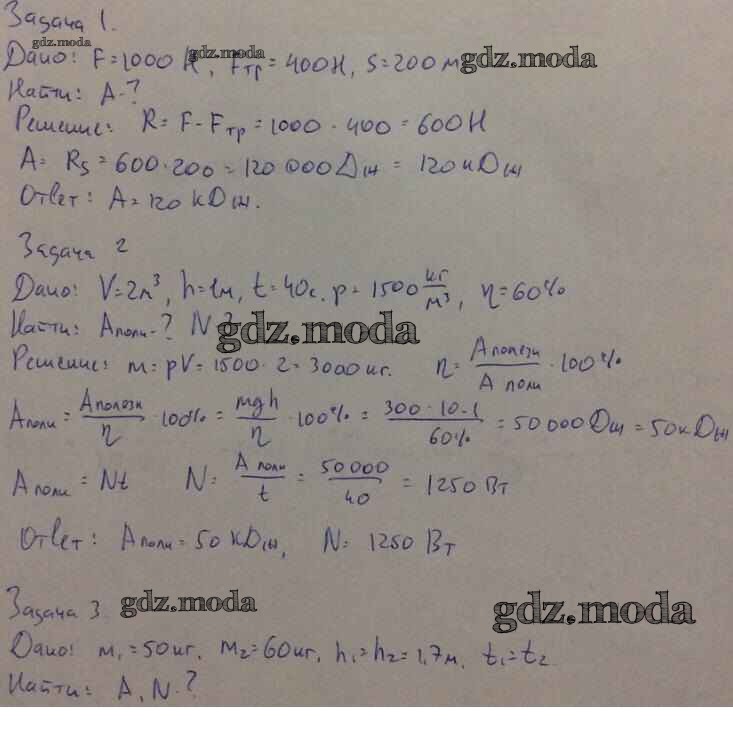 Задача 1.
gdz.moda
Дано: F=1000 Н, Fтр = 400Н, S=200 м
gdz.moda gdz.moda
Найти: A-?
Решение: R = F - Fтр = 1000 - 400 = 600Н
A = RS = 600·200 = 120 000 Дж = 120 кДж
Ответ: A = 120 кДж.
Задача 2
Дано: V=2м³, h=1м, t=40с. p = 1500 кг/м³, η=60%
Найти: Aполн-? N-?
gdz.moda
Решение: m = pV = 1500 · 2 = 3000 кг. η = Aполезн/A полн · 100%
Aполн = Aполезн/η · 100% = mgh/η · 100% = 300·10·1/60% = 50 000 Дж = 50кДж
A полн = Nt N = A полн/t = 50000/40 = 1250 Вт
Ответ: Aполн = 50 кДж, N = 1250 Вт
Задача 3. gdz.moda
gdz.moda
Дано: m₁=50кг, m₂=60кг, h₁=h₂=1,7м, t₁=t₂
Найти: A, N-?